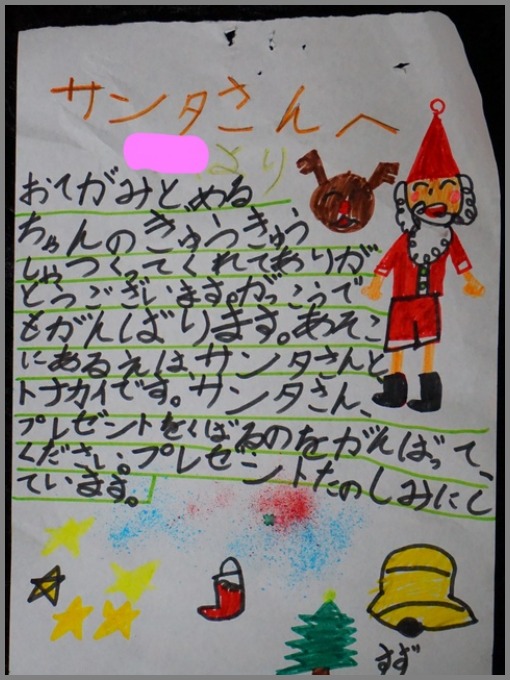 サンタさんへ
より
おてがみと、める
ちゃんのぎゅうきゅう
しゃつくってくれてありが
とうございます。がっこうで
もがんばります。あそこ
にあるえは、サンタさんと
トナカイです。サンタさん、
プレゼントをくばるのをがんばって、
ください。プレゼントたのしみにし
ています。
すず